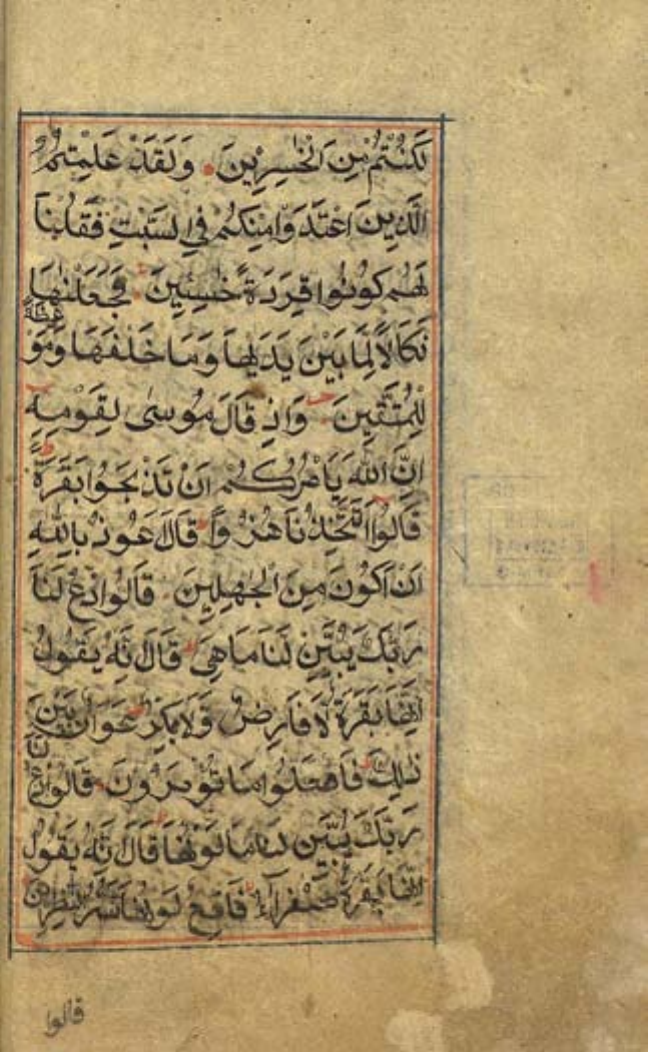 لَكُنْتُمْ مِنَ الْخٰسِرِينَ وَلَقَدْ عَلِمْتُمُ
الَّذِينَ اعْتَدَوْا مِنْكُمْ فِي السَّبْتِ فَقُلْنَا
لَهُمْ كُونُوا قِرَدَةً خٰسِئِينَ فَجَعَلْنٰهَا
نَكَالًا لِمَا بَيْنَ يَدَيْهَا وَمَا خَلْفَهَا وَمَوْعِظَةً
لِلْمُتَّقِينَ وَإِذْ قَالَ مُوسٰى لِقَوْمِهِ
اِنَّ اللّٰهَ يَأْمُرُكُمْ اَنْ تَذْبَحُوا بَقَرَةً
قَالُوا اَتَتَّخِذُنَا هُزُوًا قَالَ اَعُوذُ بِاللّٰهِ
اَنْ اَكُونَ مِنَ الْجٰهِلِينَ قَالُوا ادْعُ لَنَا
رَبَّكَ يُبَيِّنْ لَنَا مَا هِيَ قَالَ اِنَّهُ يَقُولُ
اِنَّهَا بَقَرَةٌ لَا فَارِضٌ وَلَا بِكْرٌ عَوَانٌ بَيْنَ
ذٰلِكَ فَافْعَلُوا مَا تُؤْمَرُونَ قَالُوا ادْعُ لَنَا
رَبَّكَ يُبَيِّنْ لَنَا مَا لَوْنُهَا قَالَ اِنَّهُ يَقُولُ
اِنَّهَا بَقَرَةٌ صَفْرَآءُ فَاقِعٌ لَوْنُهَا تَسُرُّ النّٰظِرِينَ
قالوا